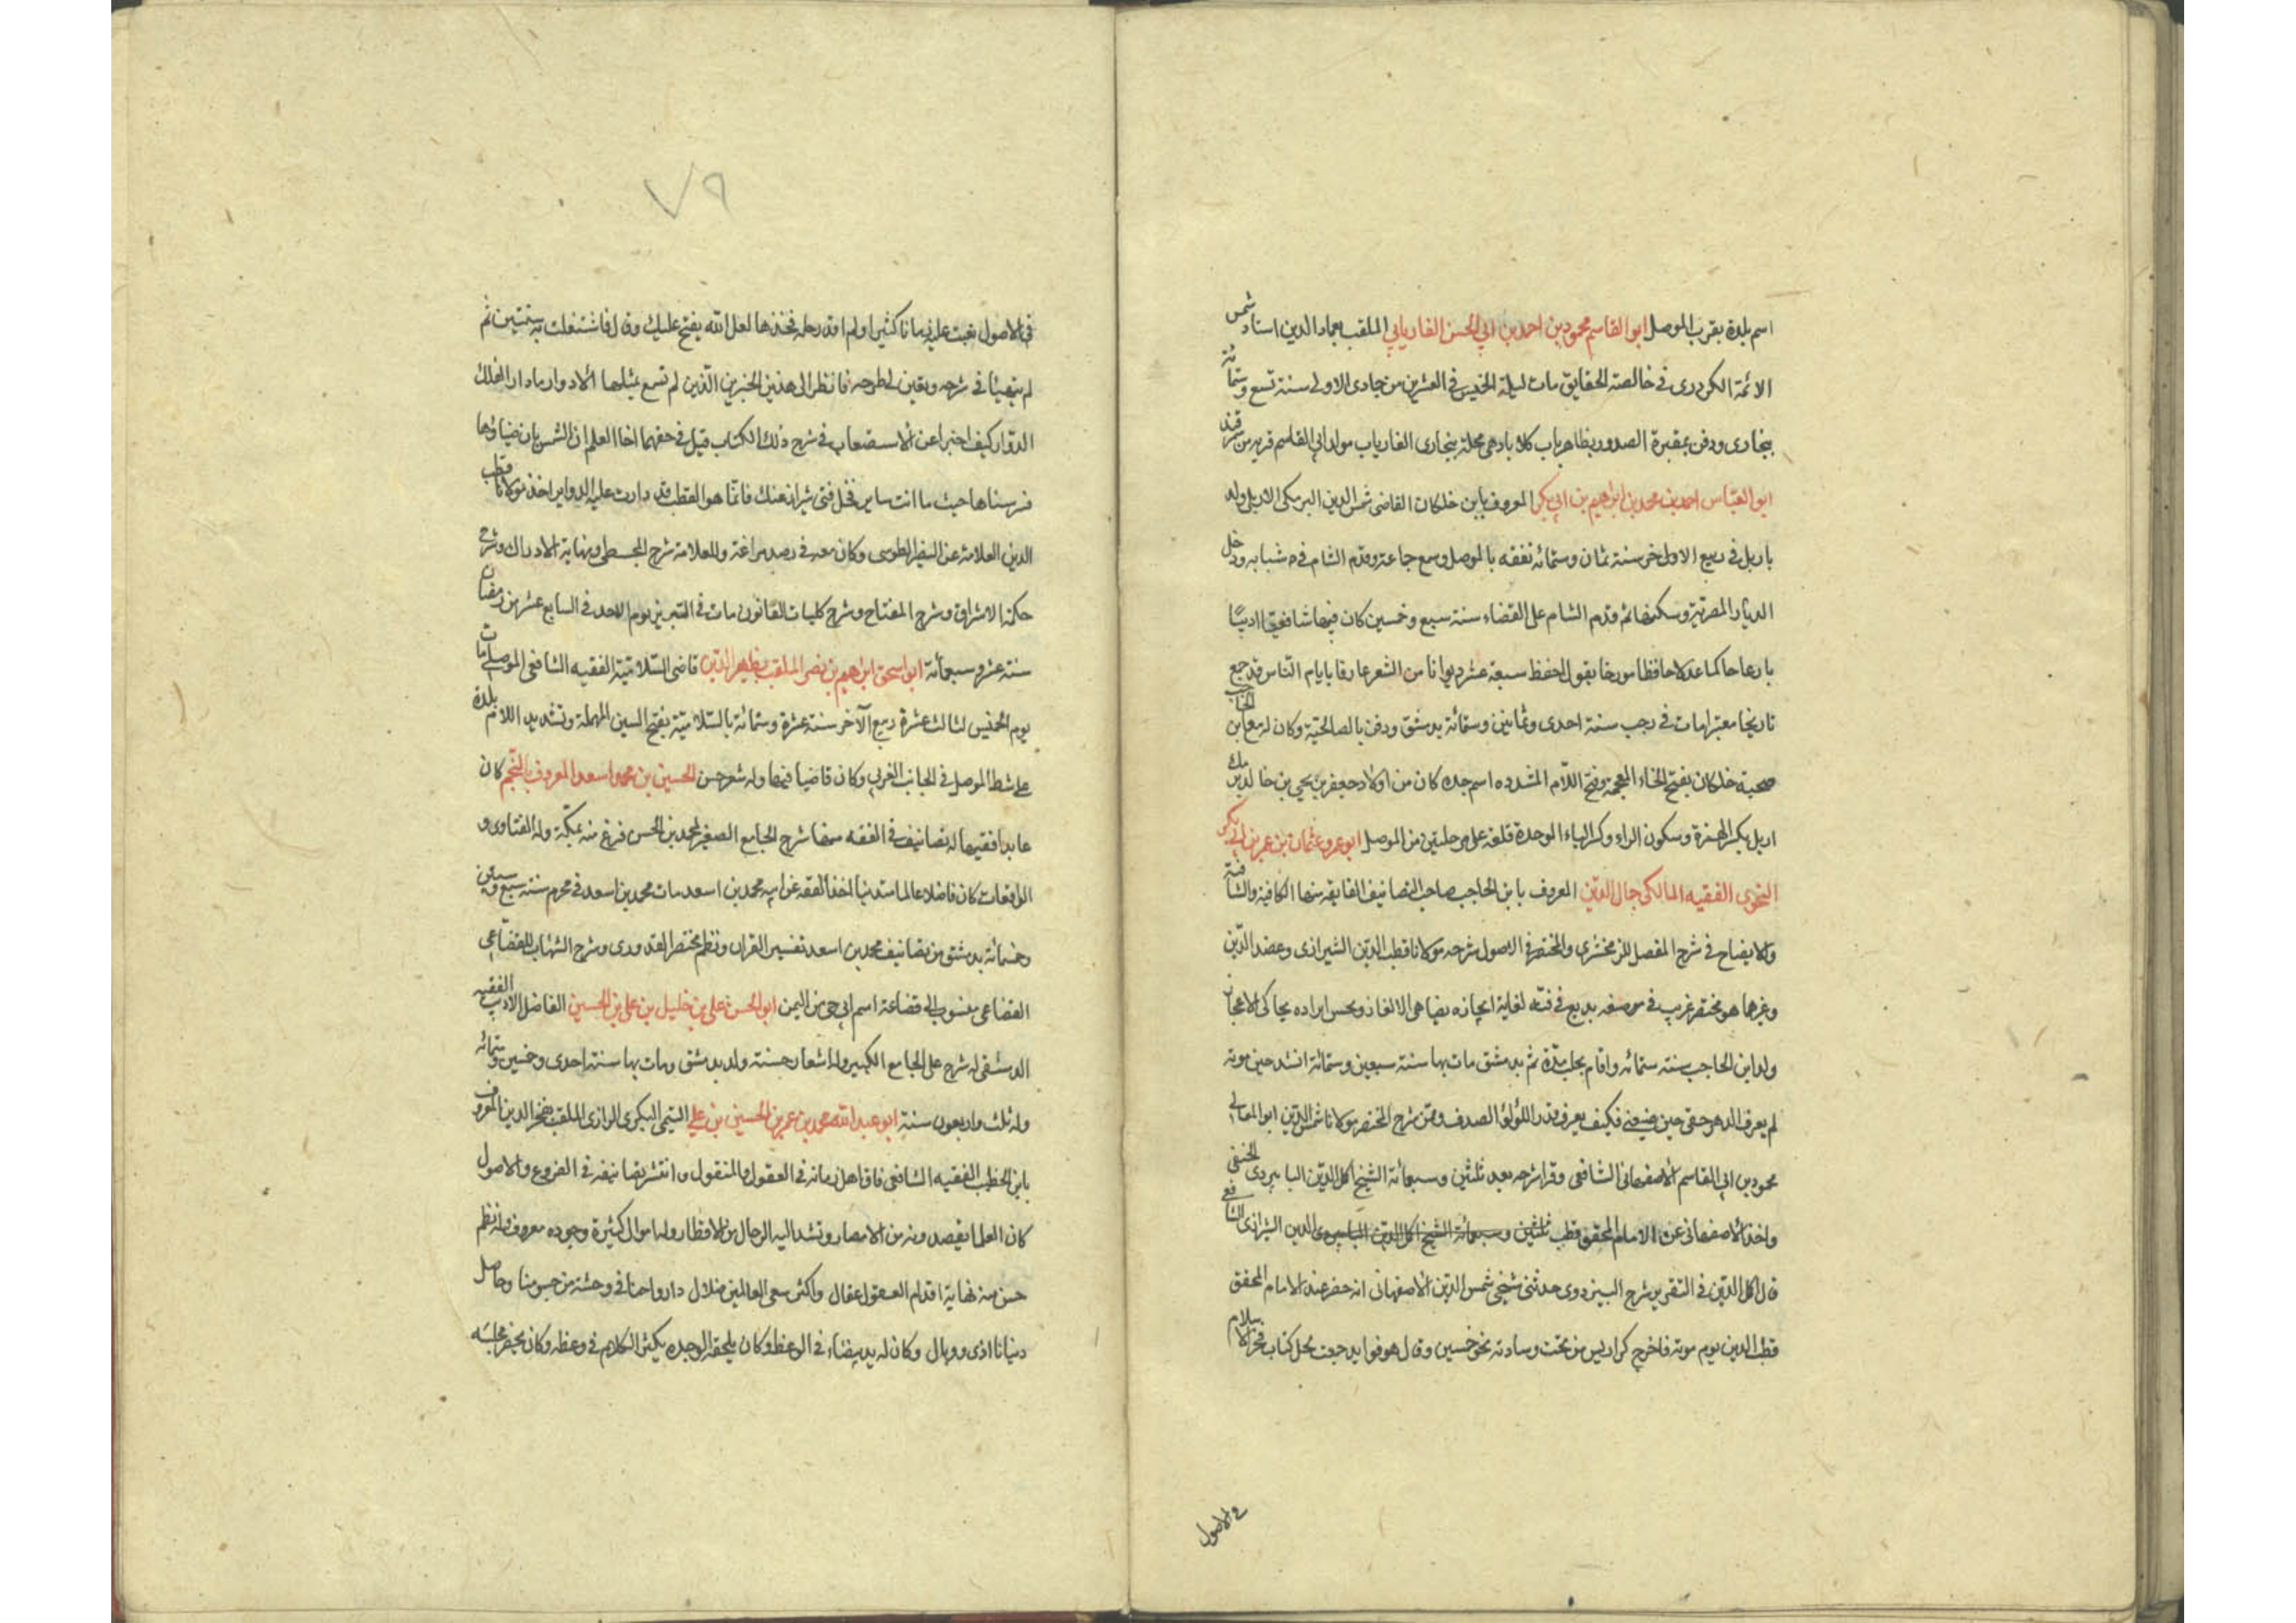 اسم بلدة بقرب الموصل ابو القاسم محمود بن احمد بن ابي الحسن الفاريابي الملقب بعماد الدين استاد شمس
الائمة الكردرى فى خالصة الحقايق مات ليلة الخميس فى العشرين من جمادى الاولى سنة تسع وستمائة
ببخارى ودفن بمقبرة الصدور بظاهر باب كلاباد هى محلة ببخارى الفارياب مولد ابي القاسم قرية من سمرقند
ابو العباس احمد بن محمد بن ابراهيم بن ابي بكر المعروف بابن خلكان القاضى شمس الدين البرمكى الاربلى ولد
باربل فى ربيع الاول سنة ثمان وستمائه تفقه بالموصل وسمع جماعة وقدم الشام فى شبابه ودخل
الديار المصرية وسكنها ثم قدم الشام على القضاء سنة سبع وخمسين كان فيها شافعيا اديبًا
بارعا حاكما عدلا حافظا مورخا يقول احفظ سبعة عشر ديوانا من الشعر عارفا بايام الناس قد جمع
تاريخا معتبرا مات فى رجب سنة احدى وثمانين وستمائة بدمشق ودفن بالصالحية وكان له مع ابن الحاجب
صحبة خلكان بفتح الخاء المعجمة وفتح اللام المشدده اسم جده كان من اولاد جعفر بن يحيى بن خالد برمك
اربل بكسر الهمزة وسكون الراء وكسر الباء الموحدة قلعة على مرحلتين من الموصل ابو عمرو عثمان بن عمر بن ابي بكر
النحوى الفقيه المالكى جمال الدين المعروف بابن الحاجب صاحب التصانيف الفايقه منها الكافية والشافية
والايضاح فى شرح المفصل للزمخشرى والمختصر فى الاصول شرحه مولانا قطب الدين الشيرازى وعضد الدين
وغيرهما هو مختصر غريب فى صنعه بديع فى فنه لغاية ايجازه يضاهى الالغاز وبحسن ايراده يحاكى الاعجاز
ولد ابن الحاجب سنة ستمائه واقام بحلب مدة ثم بدمشق مات بها سنة سبعين وستمائة انشد حين موته
لم يعرف الدهر حقى حين ضيعنى فكيف يعرف قدر اللؤلؤ الصدف وممن شرح المختصر مولانا شمس الدين ابو المعالى
محمود بن ابي القاسم الاصفهانى الشافعى وقرا شرحه بعيد ثلثين وسبعمائة الشيخ اكمل الدين البابرردى الحنفى
واخذ الاصفهانى عن الامام المحقق قطب ثلثين وسبعمائة الشيخ اكمل الدين البابرردى الدين الشيرازى الشافعى
قال اكمل الدين فى التقرير شرح البزدوى حدثنى شيخى شمس الدين الاصفهانى انه حضر عند الامام المحقق
قطب الدين يوم موته فاخرج كراريس من تحت وسادته نحو خمسين وقال هو فوايد جمعت لحل كتاب فخر الاسلام
فى الاصول
٧٩
فى الاصول تعبت عليه زمانا كثيرا ولم اقدر حله فخذها لعل الله يفتح عليك وقال فاشتغلت به سنتين ثم
لم يتهيأ فى شرحه ويقين لى طرحه فانظر الى هذين الخبرين الذين لم تسمع بمثلهما الادوار مادار الفلك
الدوار كيف اخبرا عن الاستصعاب فى شرح ذلك الكتاب قيل فى حقهما اخا العلم ان الشمس بان ضياؤها
فسر سناها حيث ما انت ساير فخل فتى شيراز عنك فانما هو القطب قد دارت عليه الدواير اخذ مولانا قطب
الدين العلامة عن النصير الطوسى وكان معه فى رصد مراغة وللعلامة شرح المجسطى ونهاية الادراك وشرح
حكمة الاشراق وشرح المفتاح وشرح كليات القانون مات فى التبريز يوم الاحد فى السابع عشر من رمضان
سنة عشر وسبعمائة ابو اسحق ابراهيم بن نصر الملقب بظهير الدين قاضى السلامية الفقيه الشافعى الموصلى مات
يوم الخميس لثالث عشرة ربيع الآخر سنة عشرة وستمائة بالسلامية بفتح السين المهملة وتشديد اللام بلدة
على شط الموصل فى الجانب الغربى وكان قاضيا فيها وله شعر حسن الحسين بن محمد اسعد المعروف بالنجم كان
عابدا فقيها له تصانيف فى الفقه منها شرح الجامع الصغير لمحمد بن الحسن فرغ منه بمكة وله الفتاوى و
الواقعات كان فاضلا عالما متدينا اخذ الفقه عن ابيه محمد بن اسعد مات محمد بن اسعد فى محرم سنة سبع وستين
وخمسمائة بدمشق من تصانيف محمد بن اسعد تفسير القران ونظم مختصر القدورى وشرح الشهاب للقضاعى
القضاعى منسوب الى قضاعة اسم ابى حى من اليمن ابو الحسن على بن خليل بن على بن الحسين الفاضل الاديب الفقيه
الدمشقى له شرح على الجامع الكبير وله اشعار حسنة ولد بدمشق ومات بها سنة احدى وخمسين وستمائه
وله ثلث واربعون سنة ابو عبد الله محمد بن عمر بن الحسين بن على التيمى البكرى الرازى الملقب بفخر الدين المعروف
بابن الخطيب الفقيه الشافعى فاق اهل زمانه فى العقول والمنقول وانتشر تصانيفه فى الفروع والاصول
كان العلما يقصدونه من الامصار وتشد اليه الرحال من الاقطار وله اموال كثيرة وجوده معروف وله نظم
حسن منه نهاية اقدام العقول عقال واكثر سعى العالمين ضلال وارواحنا فى وحشة من جسومنا وحاصل
دنيانا اذى ووبال وكان له يد بيضاء فى الوعظ وكان يلحقه الوجد يكثر الكلام فى وعظه وكان يحضر مجلسه